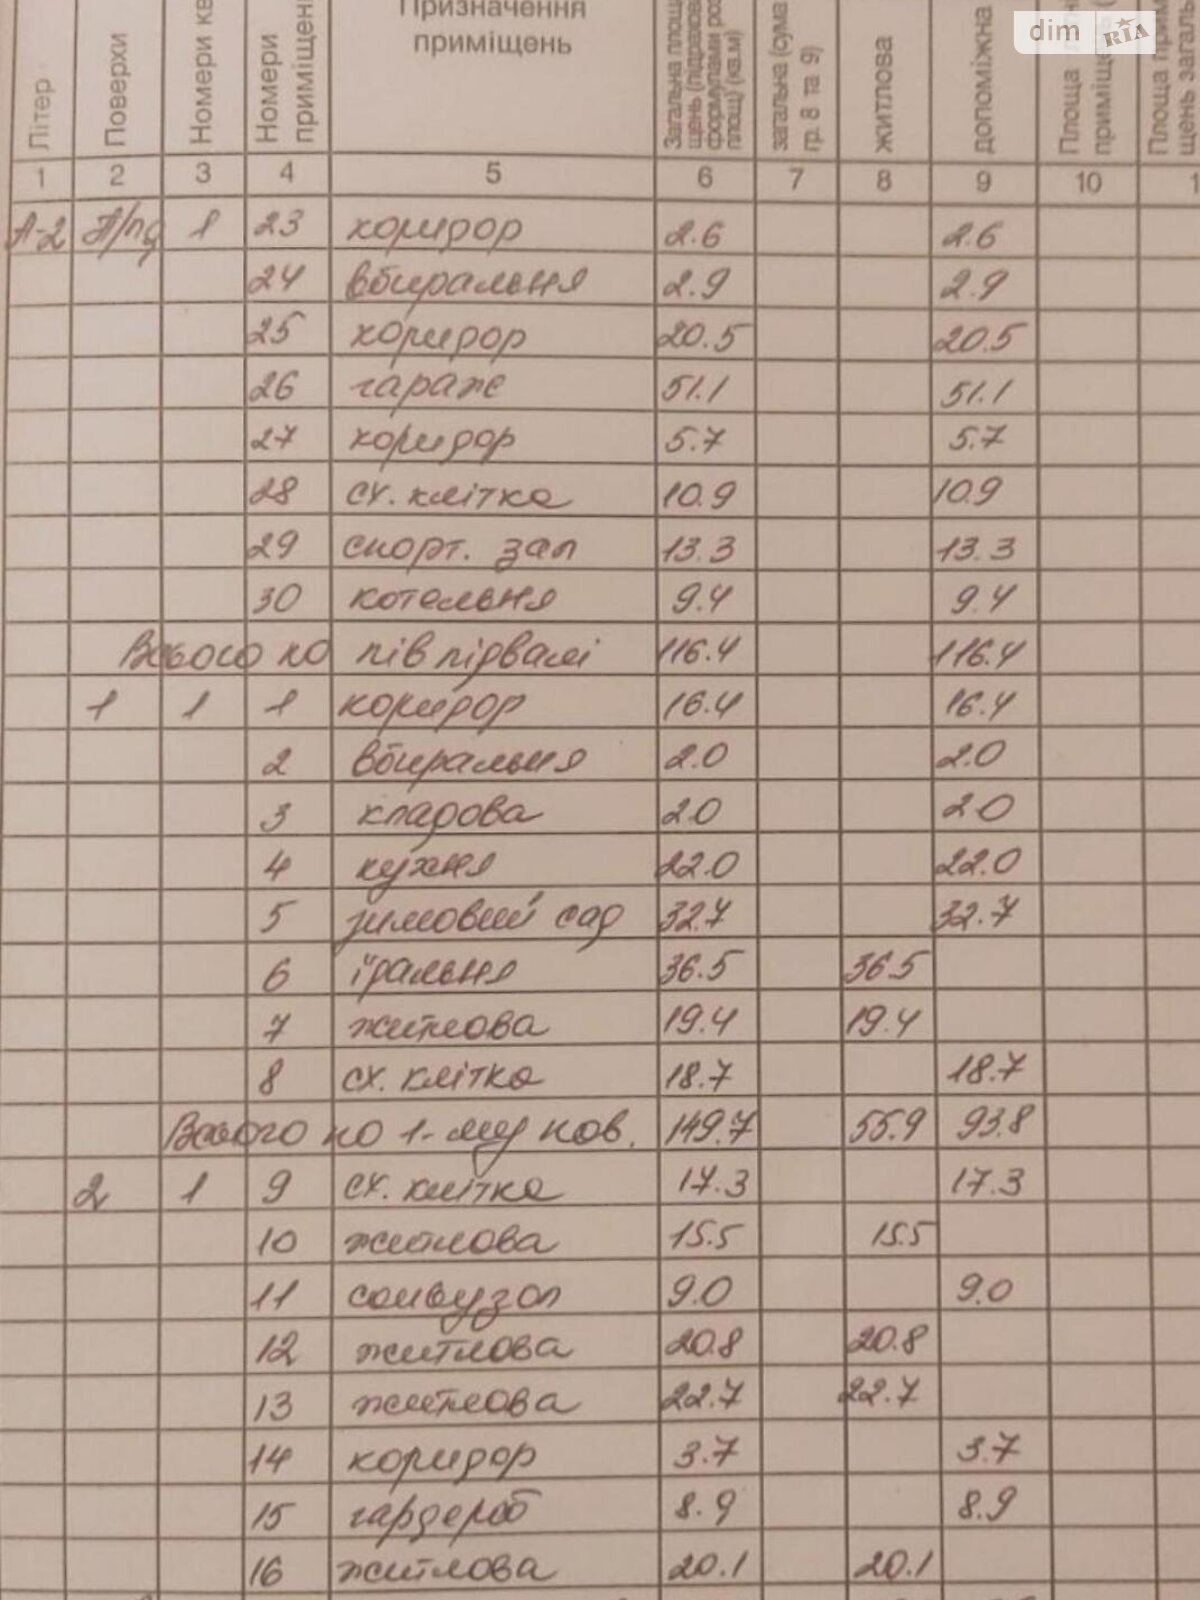 dim RIA
Літер
Поверхи
Номери кв
Номери приміщень
Призначення приміщень
загальна (сума гр. 8 та 9)
житлова
допоміжна
1 2 3 4 5 6 7 8 9 10 1
А-2 П/пд 1 23 коридор 2.6 2.6
24 вбиральня 2.9 2.9
25 коридор 20.5 20.5
26 гараж 51.1 51.1
27 коридор 5.7 5.7
28 сх. клітка 10.9 10.9
29 спорт. зал 13.3 13.3
30 котельня 9.4 9.4
Всього по півпідвалі 116.4 116.4
1 1 1 коридор 16.4 16.4
2 вбиральня 2.0 2.0
3 кладова 2.0 2.0
4 кухня 22.0 22.0
5 зимовий сад 32.7 32.7
6 їдальня 36.5 36.5
7 житлова 19.4 19.4
8 сх. клітка 18.7 18.7
Всього по 1-му пов. 149.7 55.9 93.8
2 1 9 сх. клітка 17.3 17.3
10 житлова 15.5 15.5
11 санвузол 9.0 9.0
12 житлова 20.8 20.8
13 житлова 22.7 22.7
14 коридор 3.7 3.7
15 гардероб 8.9 8.9
16 житлова 20.1 20.1